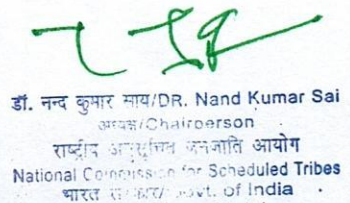 डॉ. नन्द कुमार साय/DR. Nand Kumar Sai
अध्यक्ष/Chairperson
राष्ट्रीय अनुसूचित जनजाति आयोग
National Commission for Scheduled Tribes
भारत सरकार/Govt. of India